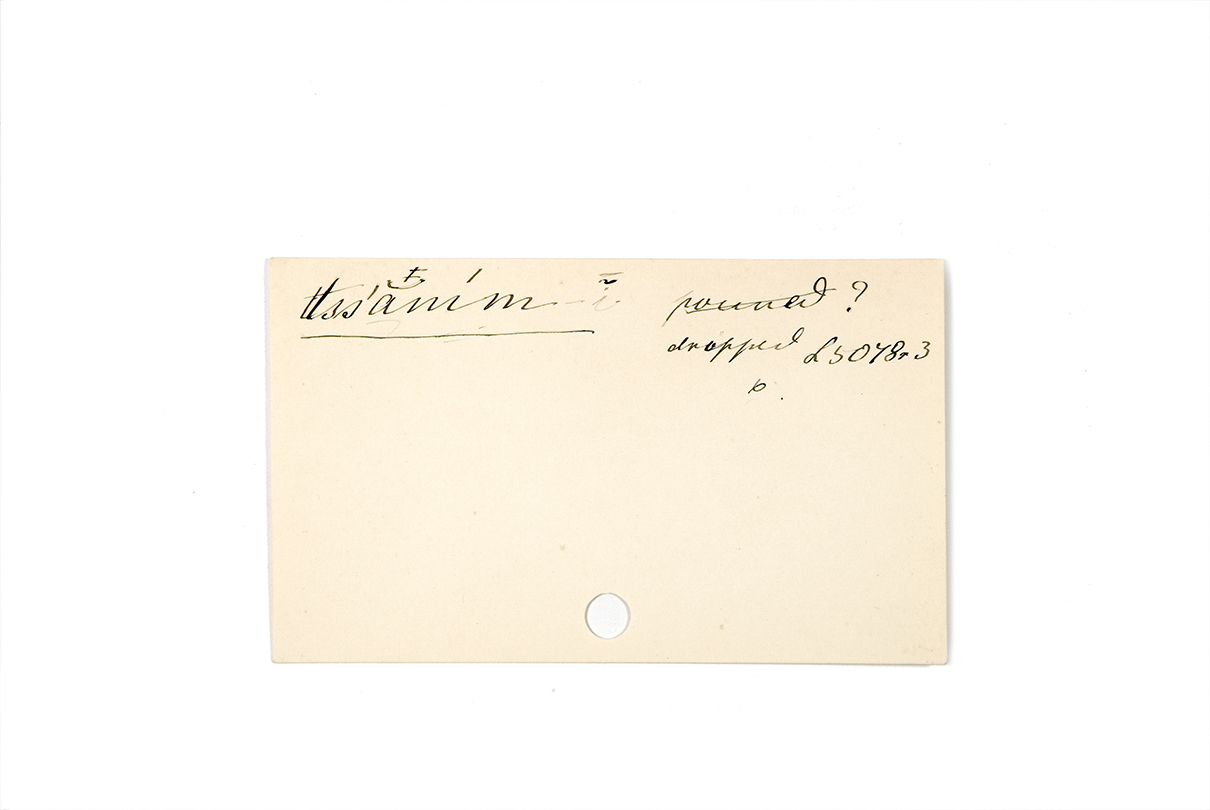 ttss'ắním -ĩ poured ?
dropped L5078,3